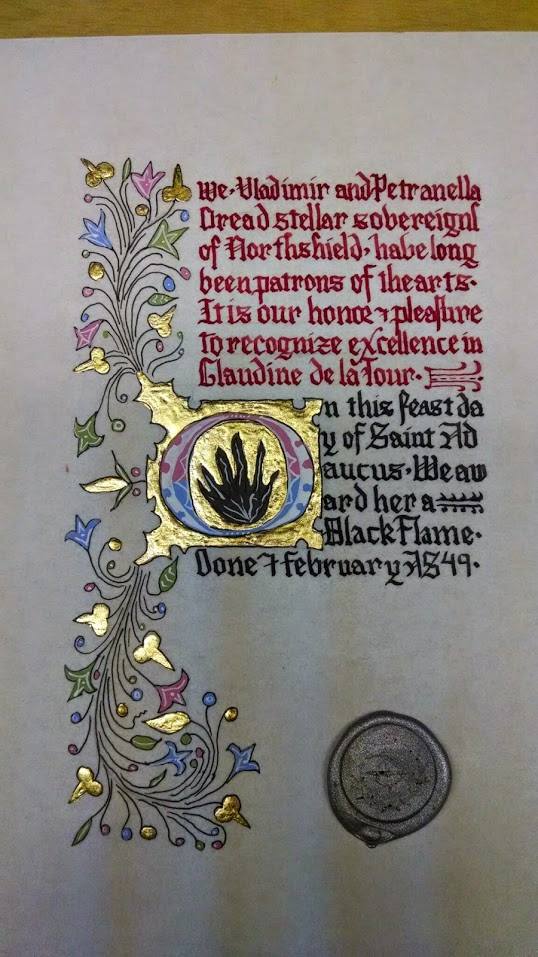 We · Vladimir and Petranella
Dread stellar sovereigns
of Northshield · have long
been patrons of the arts ·
It is our honor & pleasure
to recognize excellence in
Claudine de la Tour ·
On this feast da
y of Saint Ad
aucus · We aw
ard her a
Black Flame ·
Done 7 february AS 49 ·